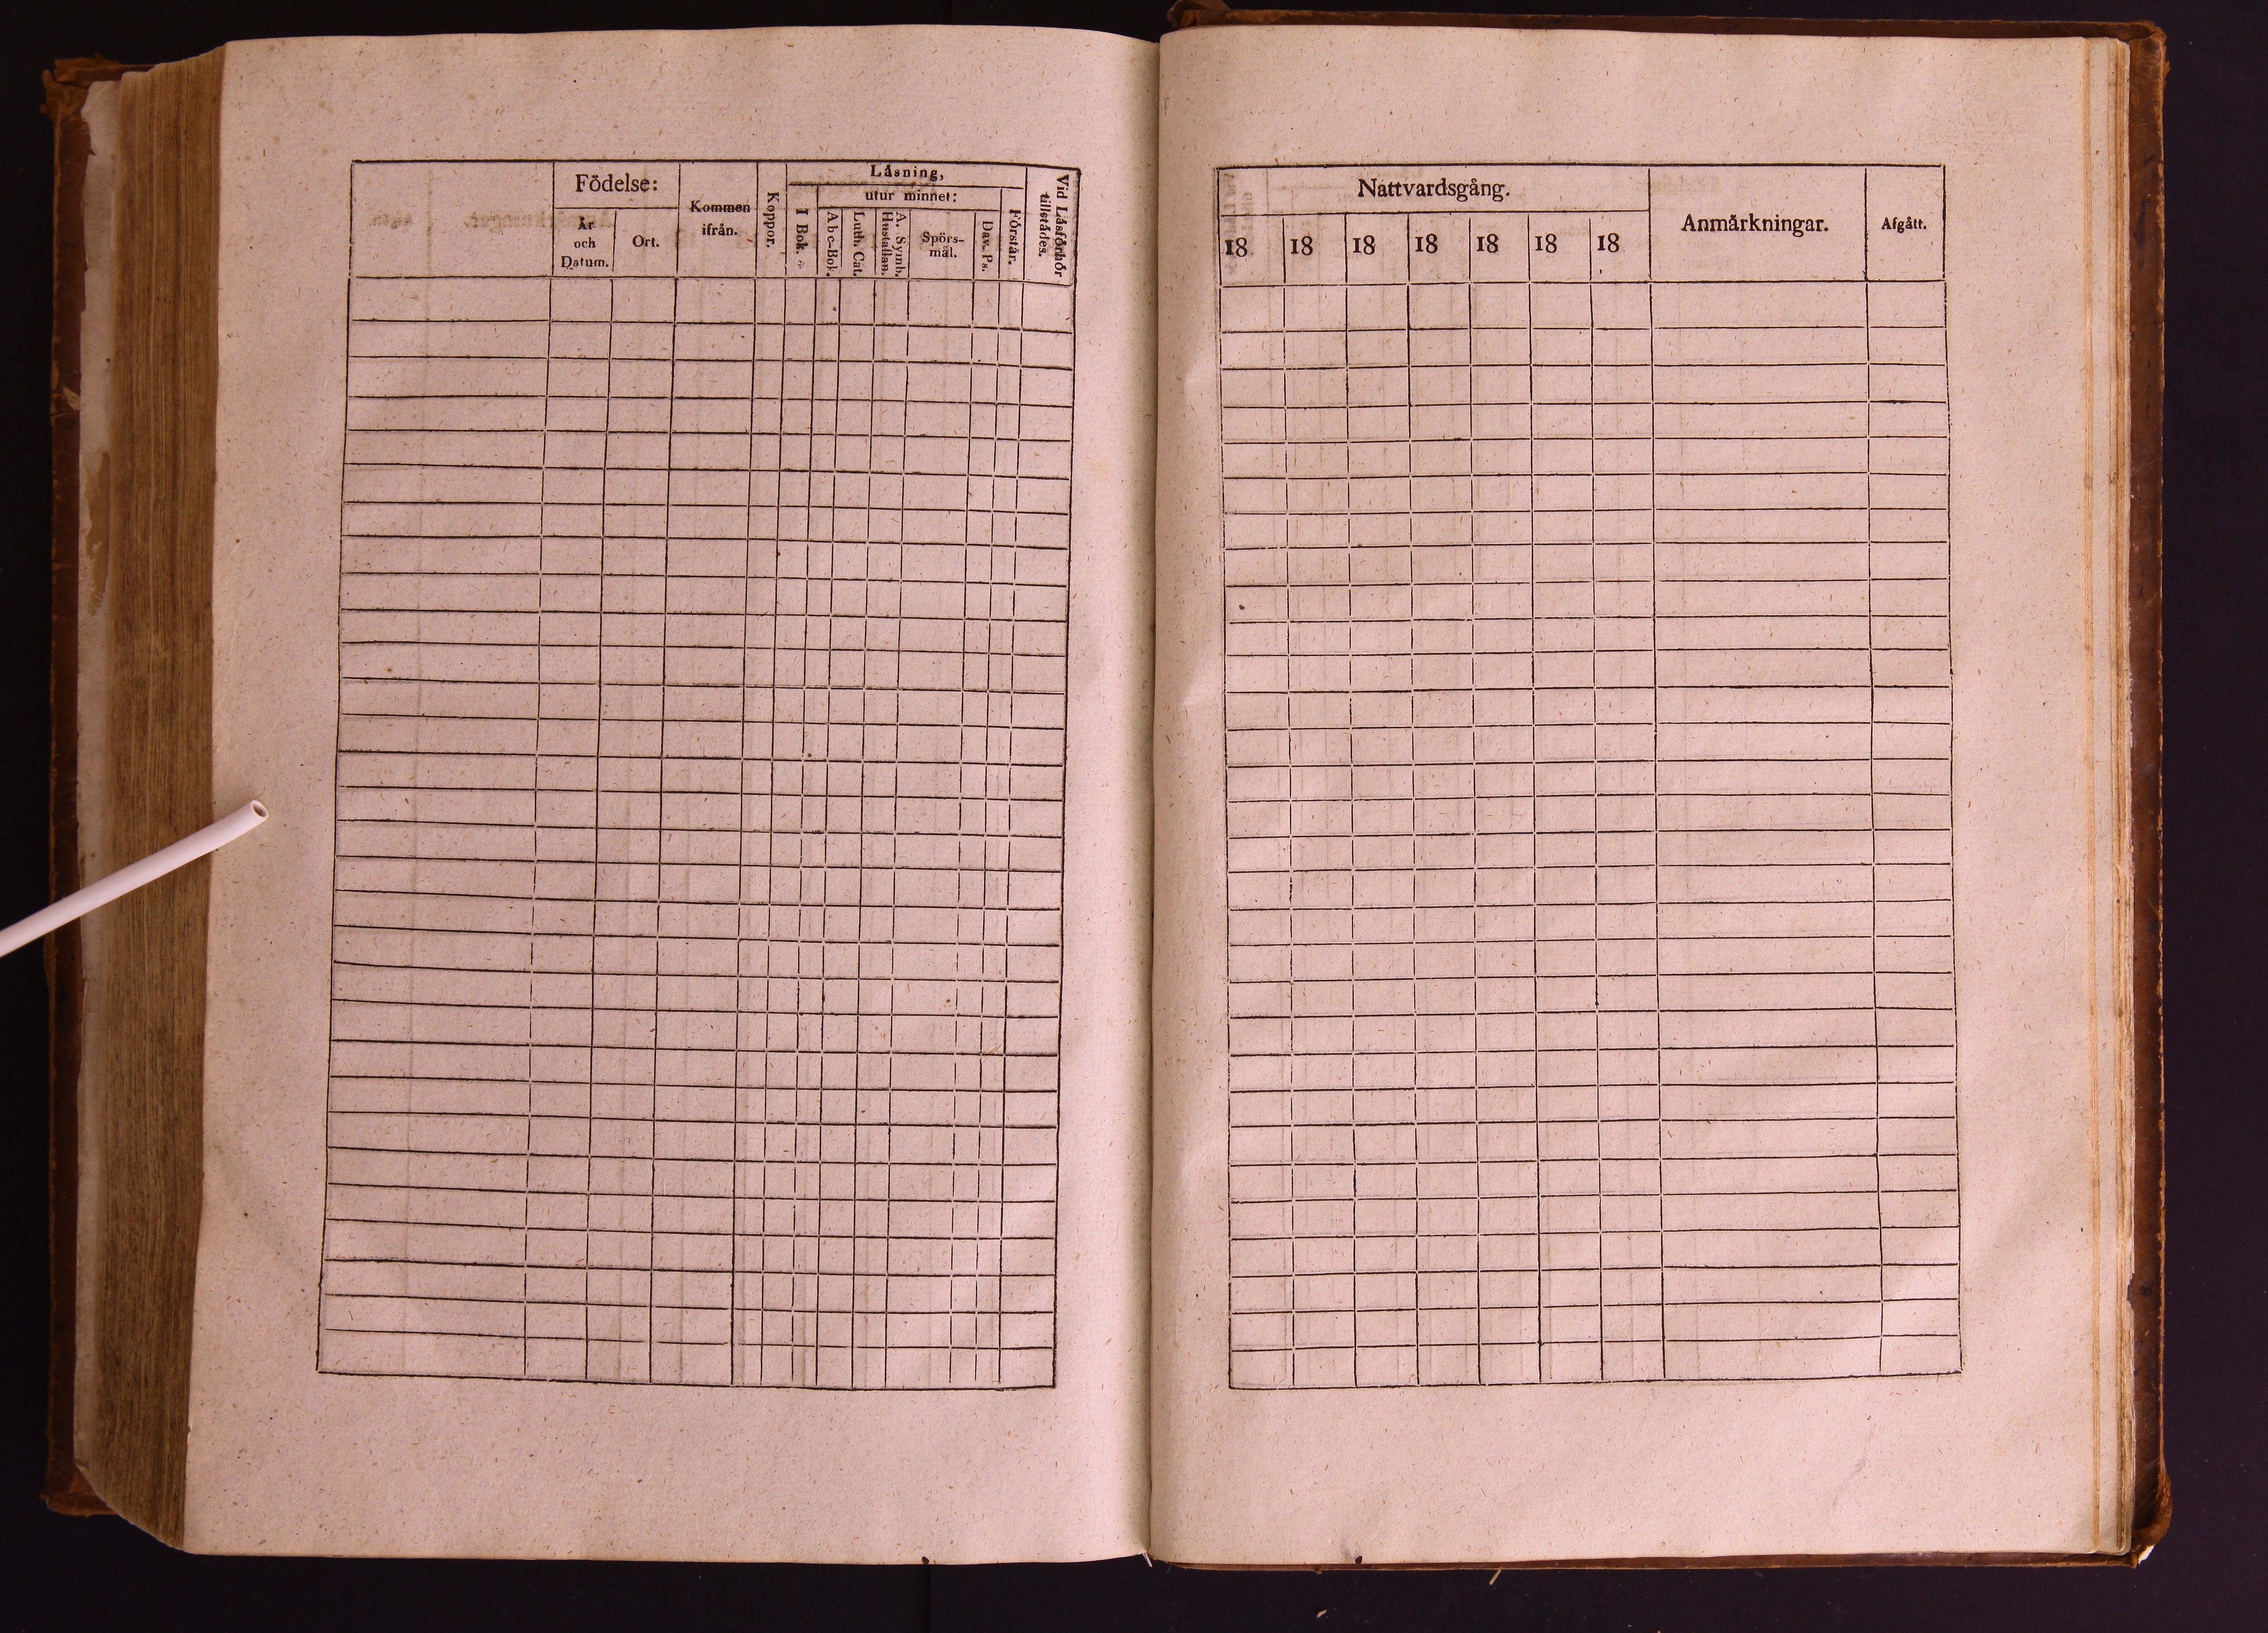 Födelse:
År
och
Datum.
Ort.
Kommen
ifrån.
Koppor.
Låsning,
I Bok.
utur minnet:
Abc-Bok.
Luth. Cat.
A. Symb.
Hustaflan.
Spörs-
mål.
Dav. Ps.
Förstår.
Vid Låsförhör
tillstådes.
Nattvardsgång.
18 18 18 18 18 18 18
Anmårkningar.
Afgått.